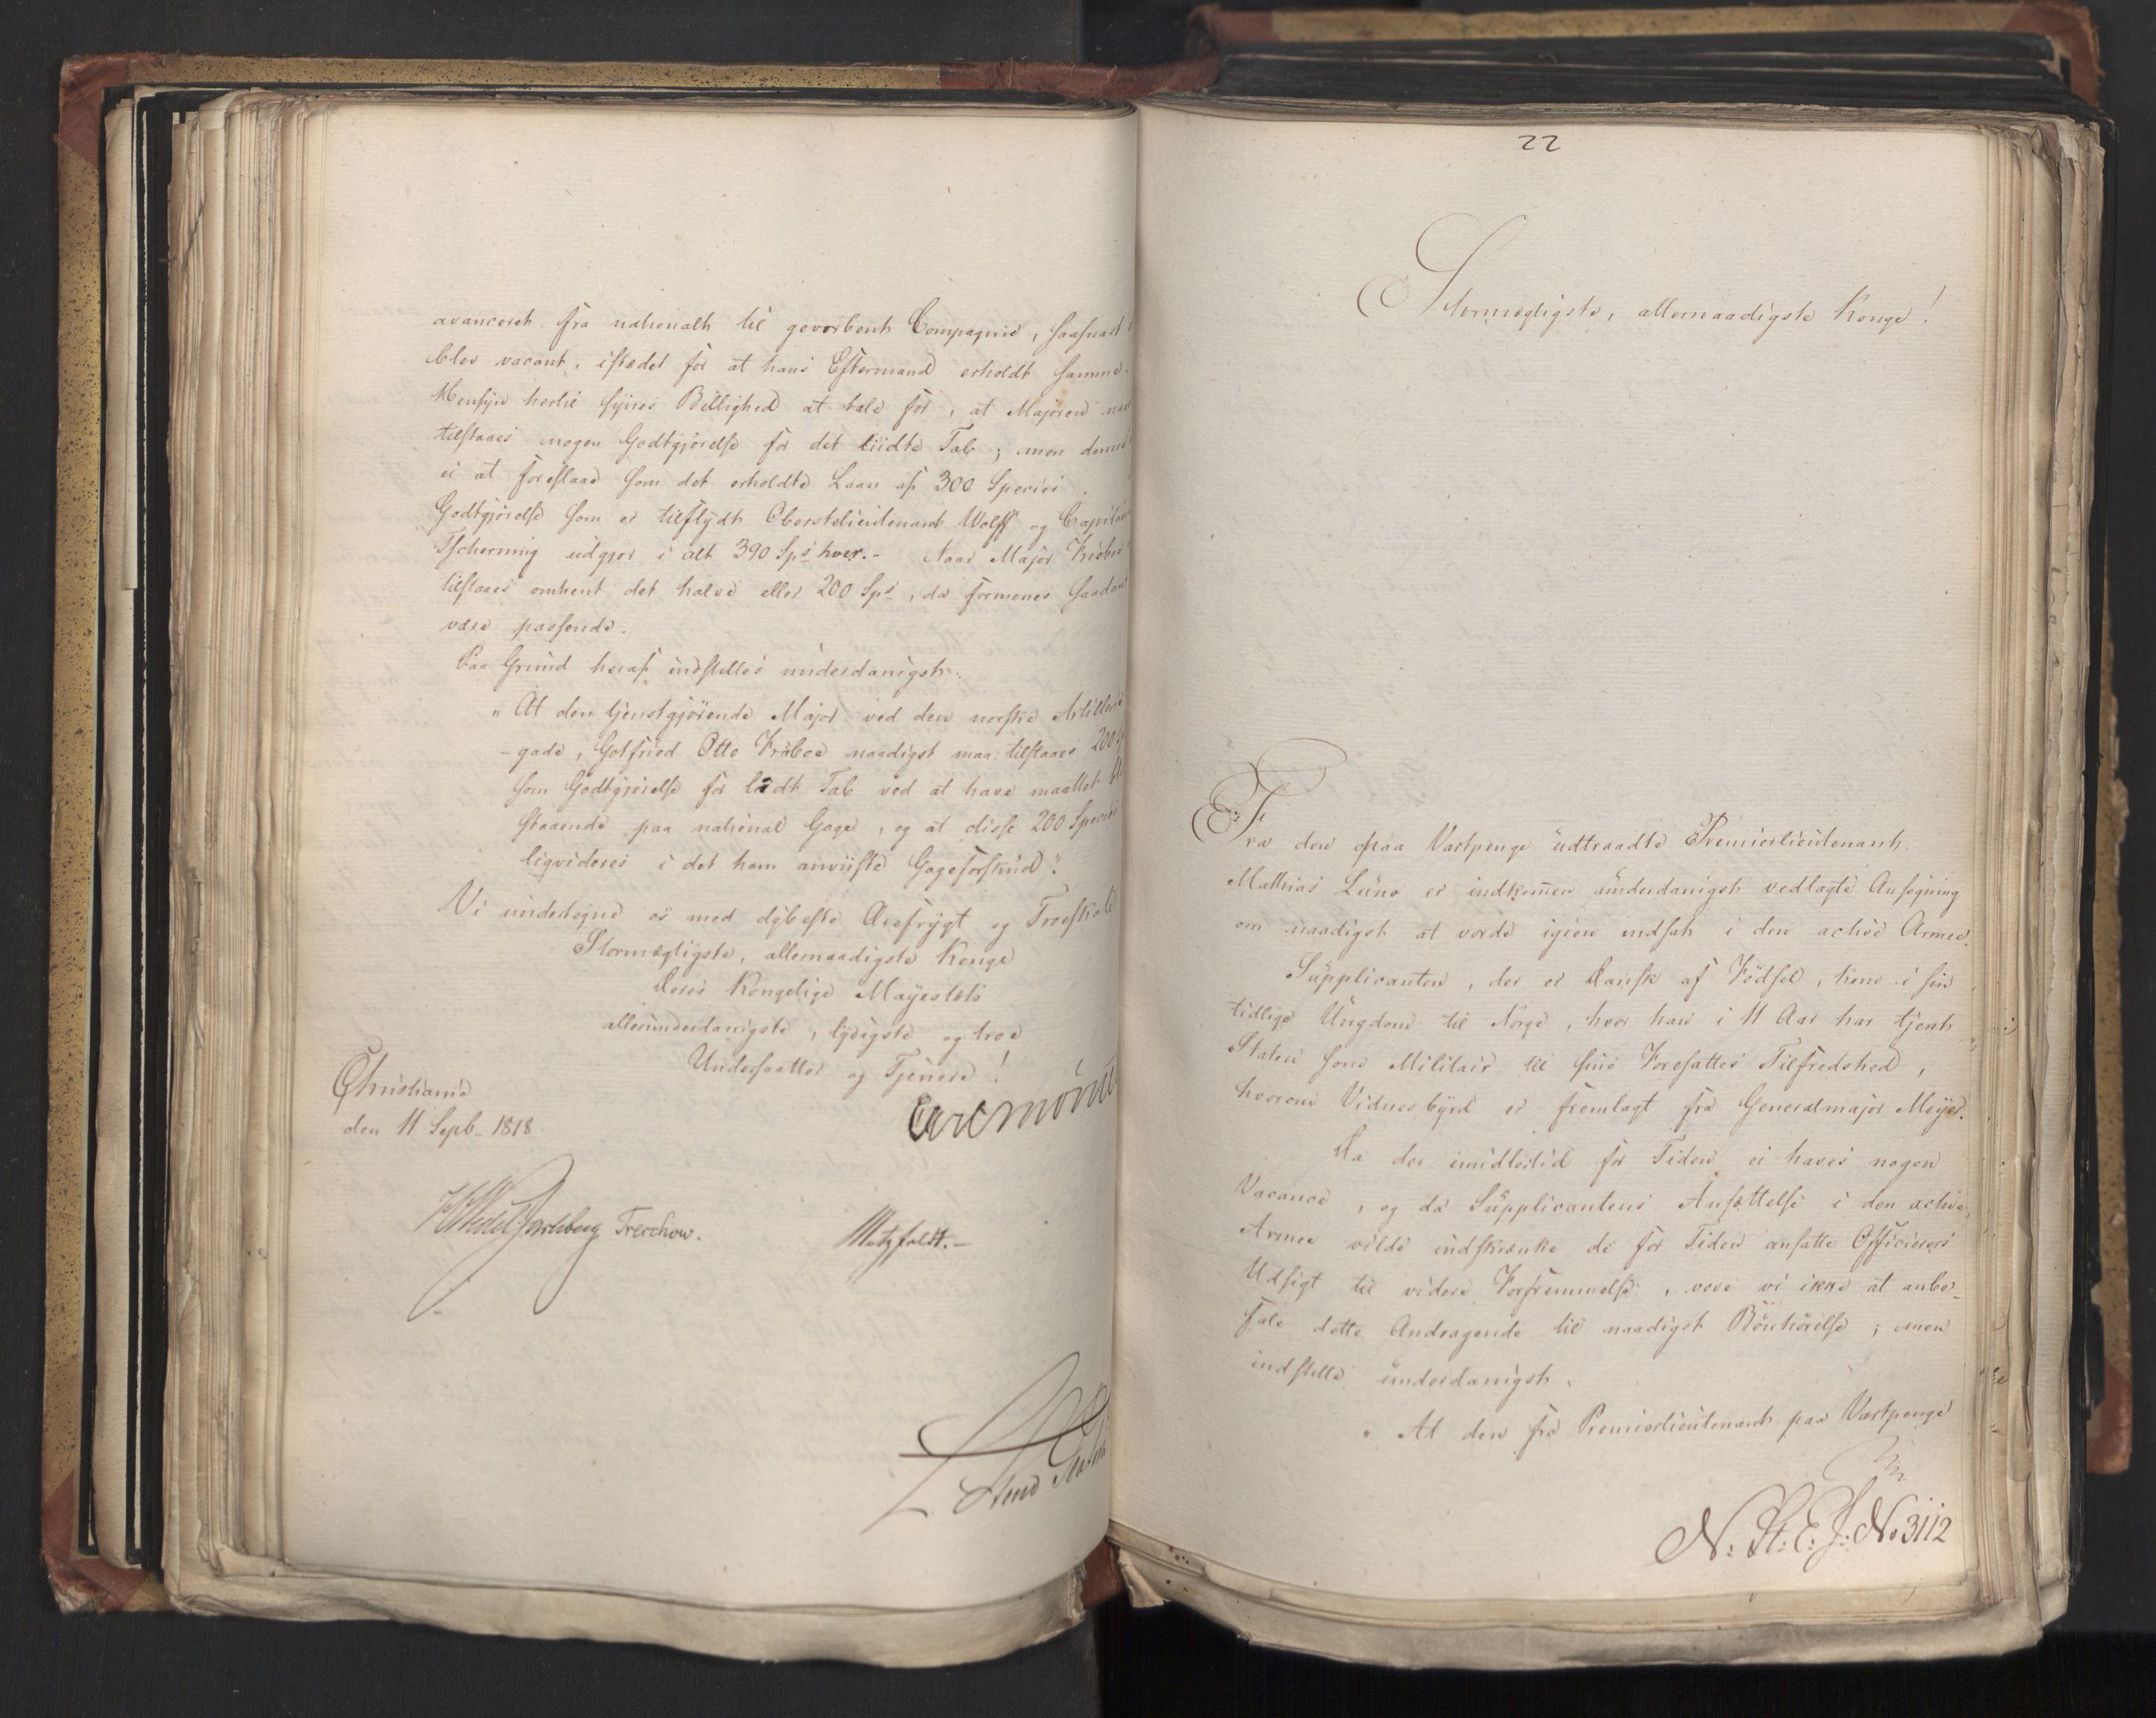 avanceret fra nationalt til gevorbent Compagnie, saasnart
blev vacant, istedet for at hans Eftermand erholdt samme.
Hensyn hertil synes Billighed at tale for, at Majoren
tilstaaes nogen Godtgjørelse for det liidte Tab; men denne
ei at foreslaae som det erholdte Laan af 300 Species.
Godtgjørelse som er tilflydt Oberstelieutenant Wolff og Capitain
Tscherning udgjør i alt 390 Sps hver.- Naar Major Kræboe
tilstaaes omtrent det halve eller 200 Sps, da formenes saadant
være passende.
Paa Grund heraf indstilles underdanigst:
"At den tjenstgjørende Major ved den norske Artillerie
-gade, Gotfried Otto Kræboe naadigst maa tilstaaes 200
som Godtgjørelse for lidt Tab ved at have maattet
staaende paa national Gage, og at disse 200 Species
liqvideres i det ham anviiste Gageforskud".
Vi undertegne os med dybeste Ærefrygt og Troeskab
Stormægtigste, allernaadigste Konge
Deres Kongelige Mayestæts
allerunderdanigste, lydigste og troe
Undersaatter og Tjenere!
Christiania
den 11 Septb. 1818.
Carl Mörner
HWedel Jarlsberg Treschow. Motzfeldt.-
22
Stormægtigste, allernaadigste Konge!
Fra den paa Vartpenge udtraadte Premierlieutenant
Mathias Luno er indkom̅en underdanigst vedlagte Ansøgning
om naadigst at vorde igien indsat i den active Armee.
Supplicanten, der er Dansk af Födsel, kom i sin
tidlige Ungdom til Norge, hvor han i 11 Aar har tjent
Staten som Militair til sine Foresattes Tilfredshed,
hvorom Vidnesbyrd er fremlagt fra Generalmajor Meyer.
Da der imidlertid for Tiden ei haves nogen
Vacance, og da Supplicantens Ansættelse i den active
Armee vilde indskrænke de for Tiden ansatte Officierers
Udsigt til videre Forfremmelse, vove vi ikke at anbe-
fale dette Andragende til naadigst Bönhörelse; men
indstille underdanigst:
"At den fra Premierlieutenant paa Vartpenge
N: St: E: J: No 3112